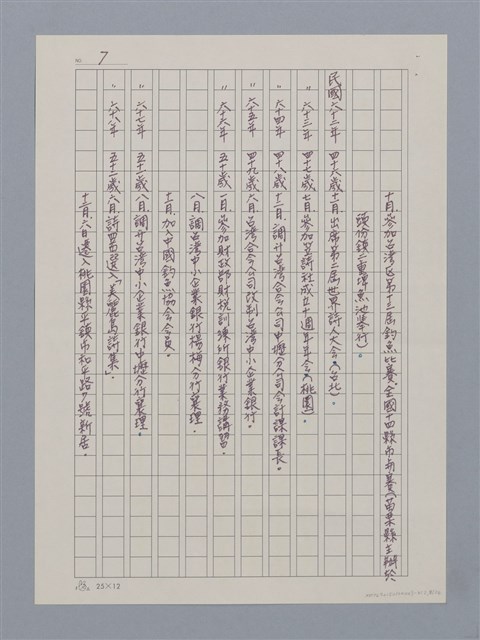 NO. 7
十月，參加台灣區第十二屆釣魚比賽，全國十四縣市參賽（苗栗縣主辦於
頭份鎮二重埤魚池舉行）。
民國六十二年 四十六歲 十一月出席第二屆世界詩人大會（台北）。
〃 六十三年 四十七歲 七月參加笠詩社成立十週年年會（桃園）。
〃 六十四年 四十八歲 十二月調升台灣合會公司中壢分公司會計課課長。
〃 六十五年 四十九歲 六月台灣合會公司改制台灣中小企業銀行。
〃 六十六年 五十歲 二月參加財政部財稅訓練所銀行業務講習。
八月調台灣中小企業銀行楊梅分行襄理。
十二月加入中國釣魚協會會員。
〃 六十七年 五十一歲 八月調升台灣中小企業銀行中壢分行襄理。
〃 六十八年 五十二歲 六月詩四首選入「美麗島詩集」。
十二月六日遷入桃園縣平鎮市和平路 號新居。
25×12